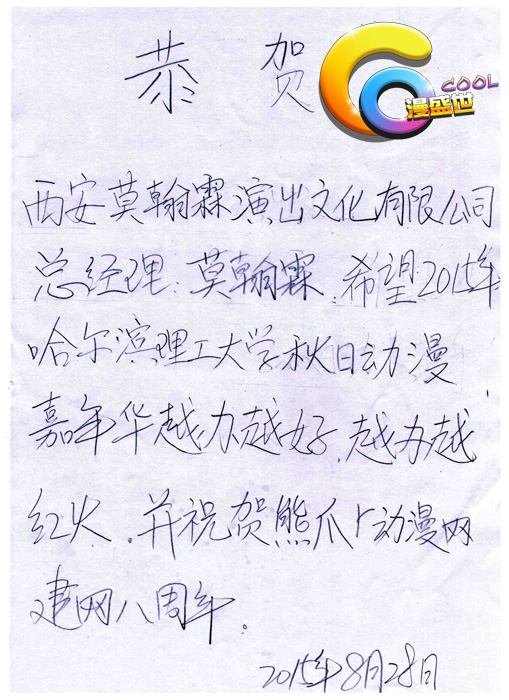 恭贺
COOL
漫盛世
西安莫翰霖演出文化有限公司
总经理:莫翰霖.希望2015年
哈尔滨理工大学秋日动漫
嘉年华越办越好.越办越
红火.并祝贺熊爪r动漫网
建网八周年.
2015年8月28日